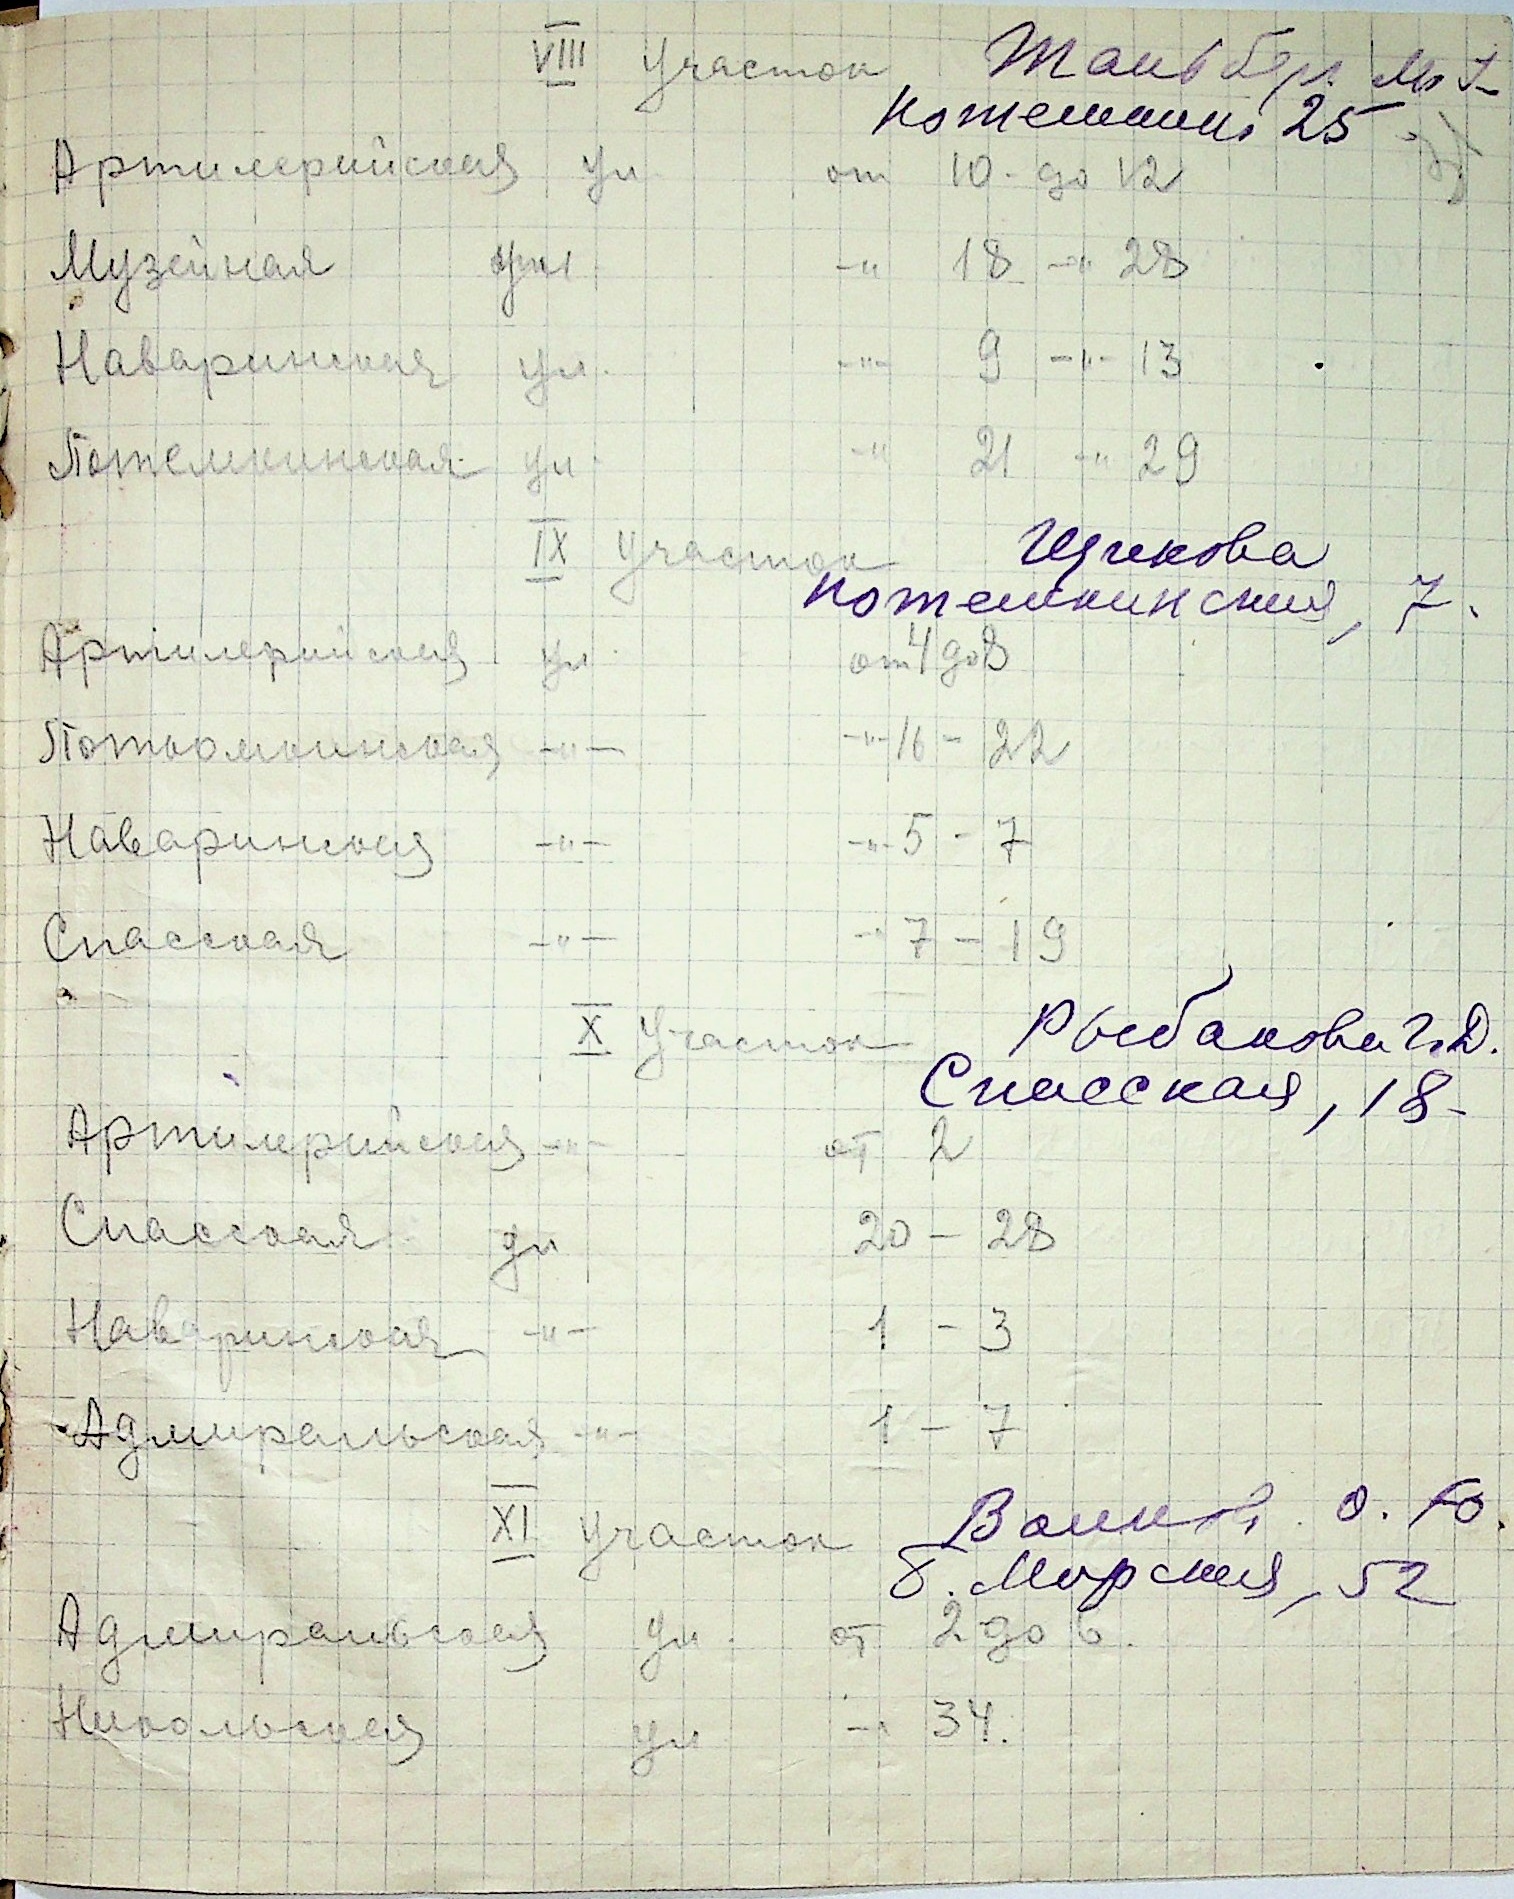 VIII Участок
Потемкинс 25
Артилерийская ул. от 10 - до 12
Музейная ул -"- 18 -"- 28
Наваринская ул. -"- 9 -"- 13
Потемкинская ул. -"- 21 -"- 29
IX Участок Щукова
Потемкинская, 7.
Артилерийская ул. от 4 до 8
Потьомкинская -"- -"- 16 - 22
Наваринская -"- -"- 5 - 7
Спасская -"- -"- 7 - 19
X Участок Рыбакова Г.Д.
Спасская, 18 -
Артилерийская -"- от 2
Спасская ул 20 - 28
Наваринская -"- 1 - 3
Адмиральская -"- 1 - 7
XI Участок О. Ю.
Б. Морская, 52
Адмиральская ул. от 2 до 6.
Никольская ул -"- 34.